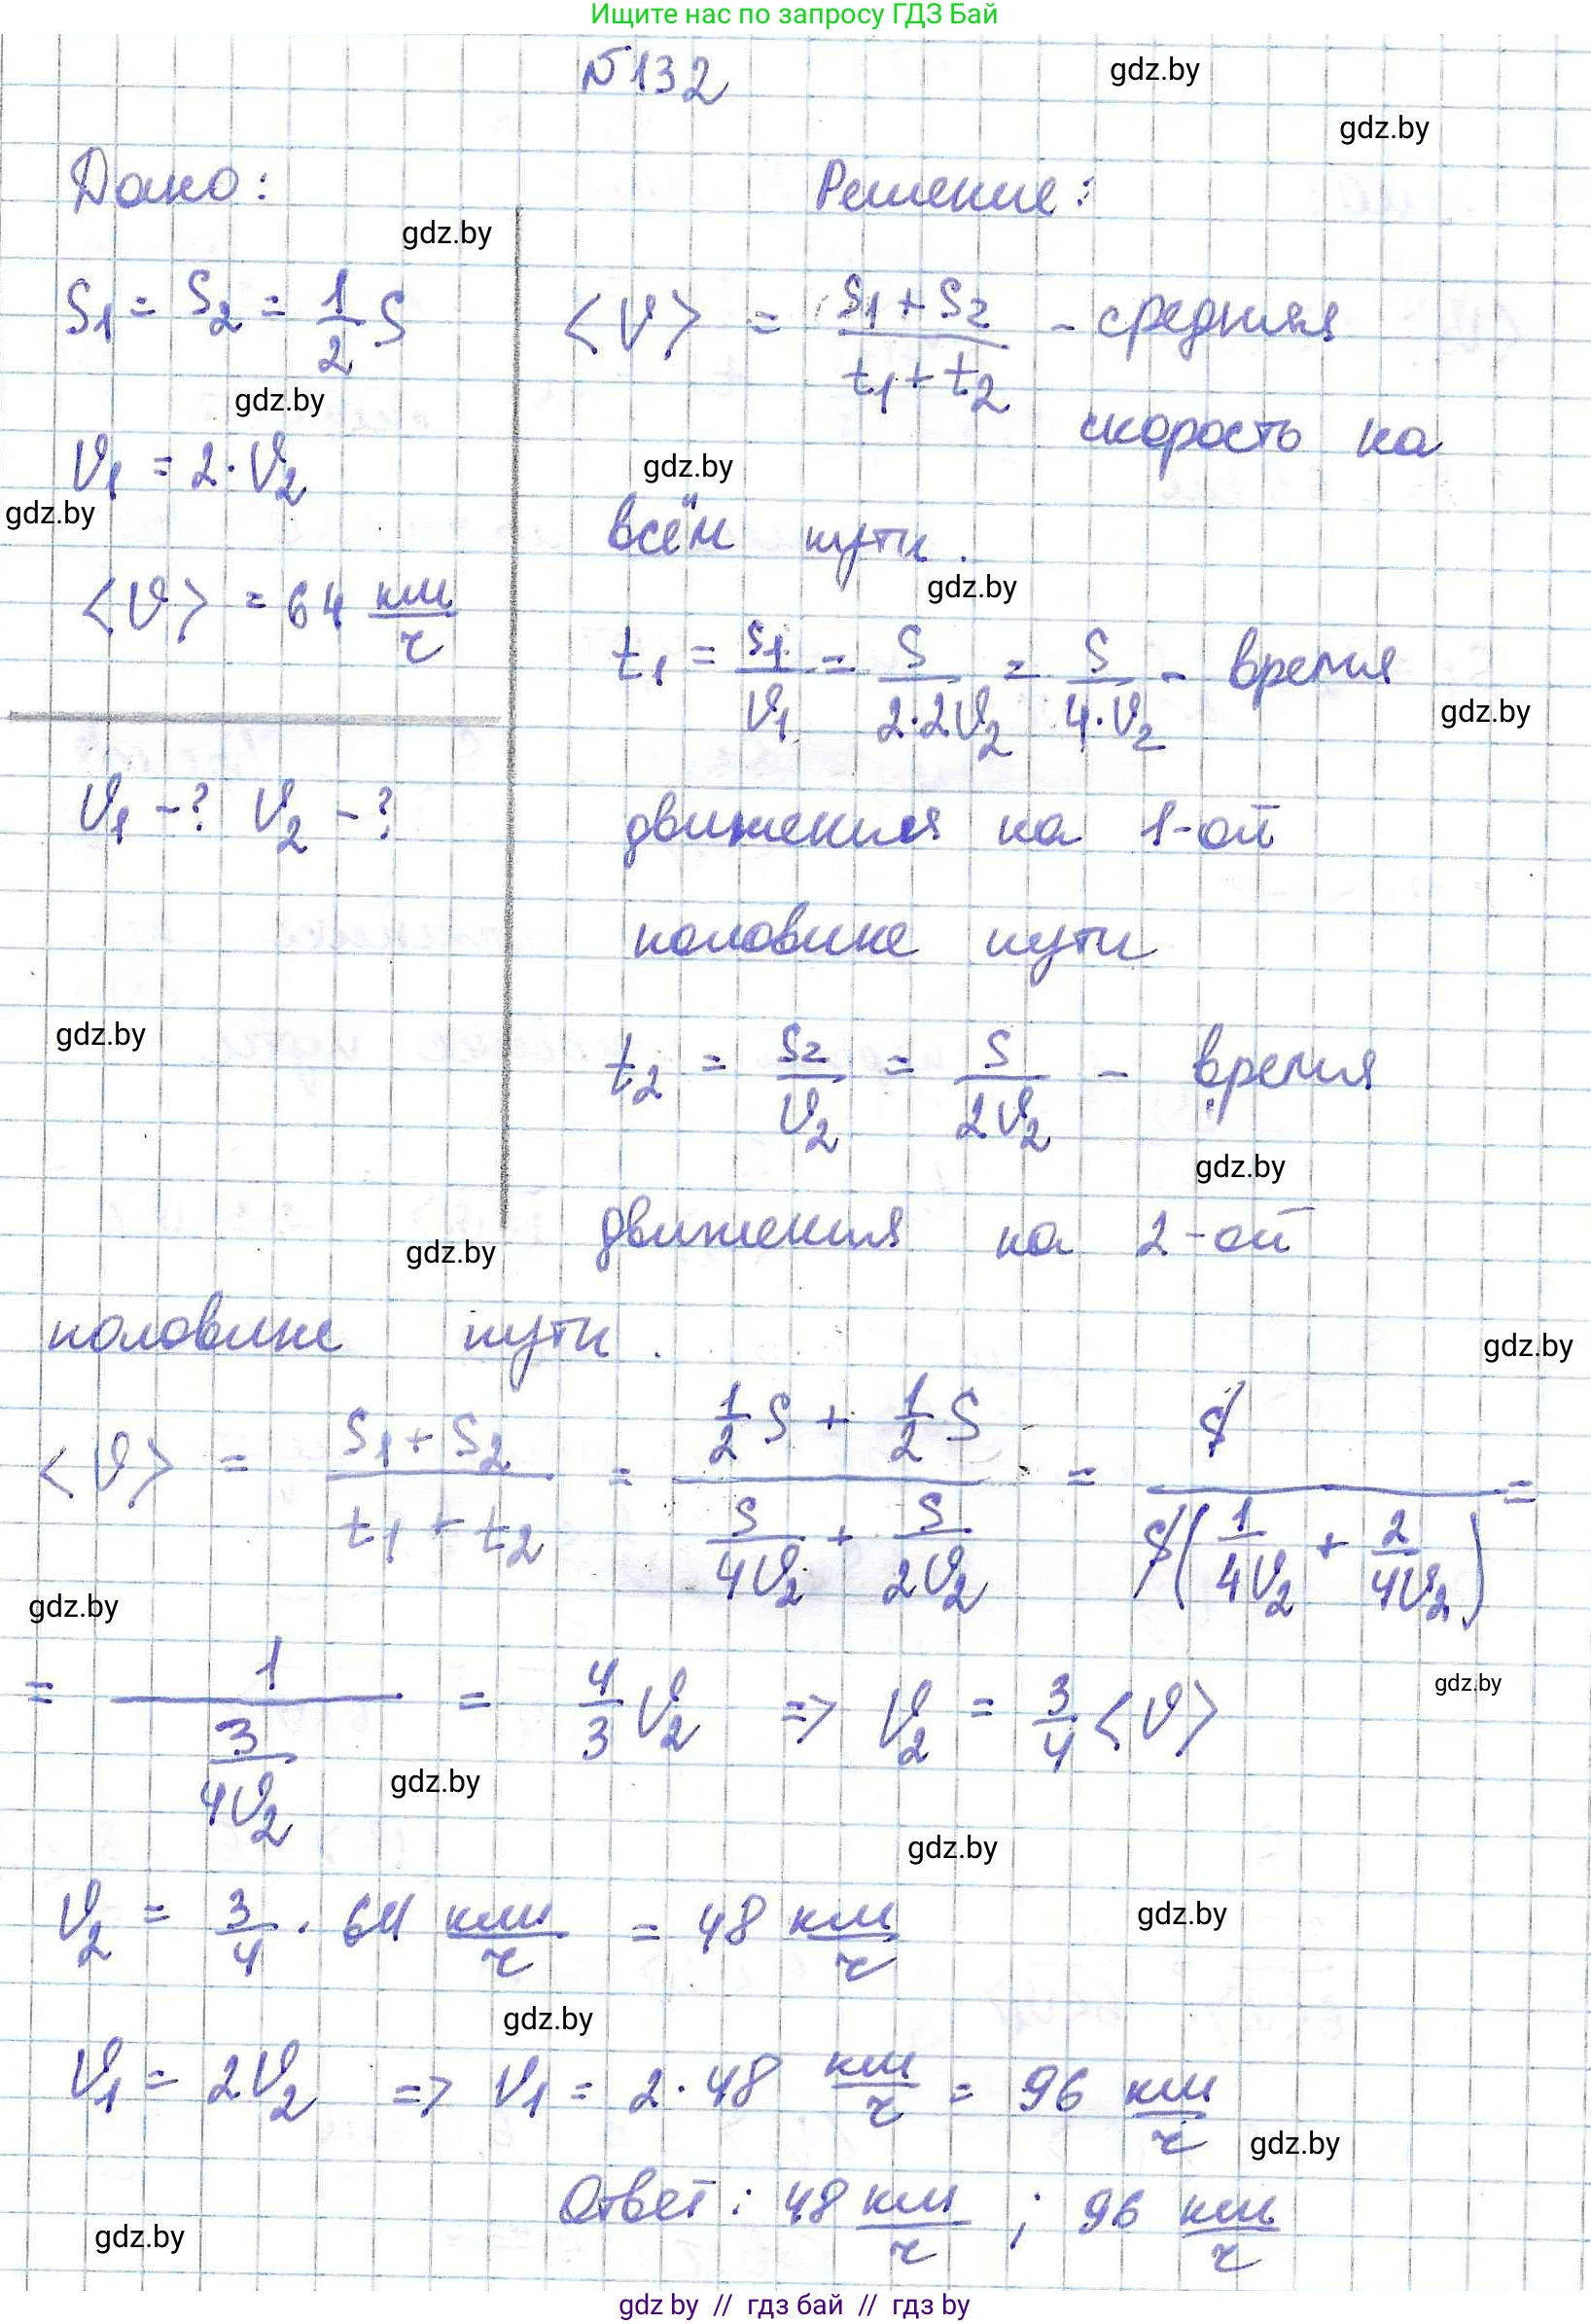 Ищите нас по запросу ГДЗ Бай
№132
gdz.by
gdz.by
Дано:
Решение:
gdz.by
S₁ = S₂ = 1/2 S
<υ> = (S₁ + S₂)/(t₁ + t₂) - средняя
gdz.by
скорость на
υ₁ = 2·υ₂
gdz.by
gdz.by
всём пути.
<υ> = 64 км/ч
gdz.by
t₁ = S₁/υ₁ = S/(2·2υ₂) = S/(4·υ₂) - время
gdz.by
υ₁ -? υ₂ -?
движения на 1-ой
половине пути
gdz.by
t₂ = S₂/υ₂ = S/(2υ₂) - время
gdz.by
движения на 2-ой
gdz.by
половине пути.
gdz.by
<υ> = (S₁ + S₂)/(t₁ + t₂) = (1/2 S + 1/2 S)/(S/(4υ₂) + S/(2υ₂)) = S/(S(1/(4υ₂) + 2/(4υ₂))) =
gdz.by
= 1/(3/(4υ₂)) = 4/3 υ₂ => υ₂ = 3/4 <υ>
gdz.by
gdz.by
gdz.by
υ₂ = 3/4 · 64 км/ч = 48 км/ч
gdz.by
gdz.by
υ₁ = 2υ₂ => υ₁ = 2·48 км/ч = 96 км/ч
gdz.by
Ответ: 48 км/ч ; 96 км/ч
gdz.by
gdz by // гдз бай // гдз by